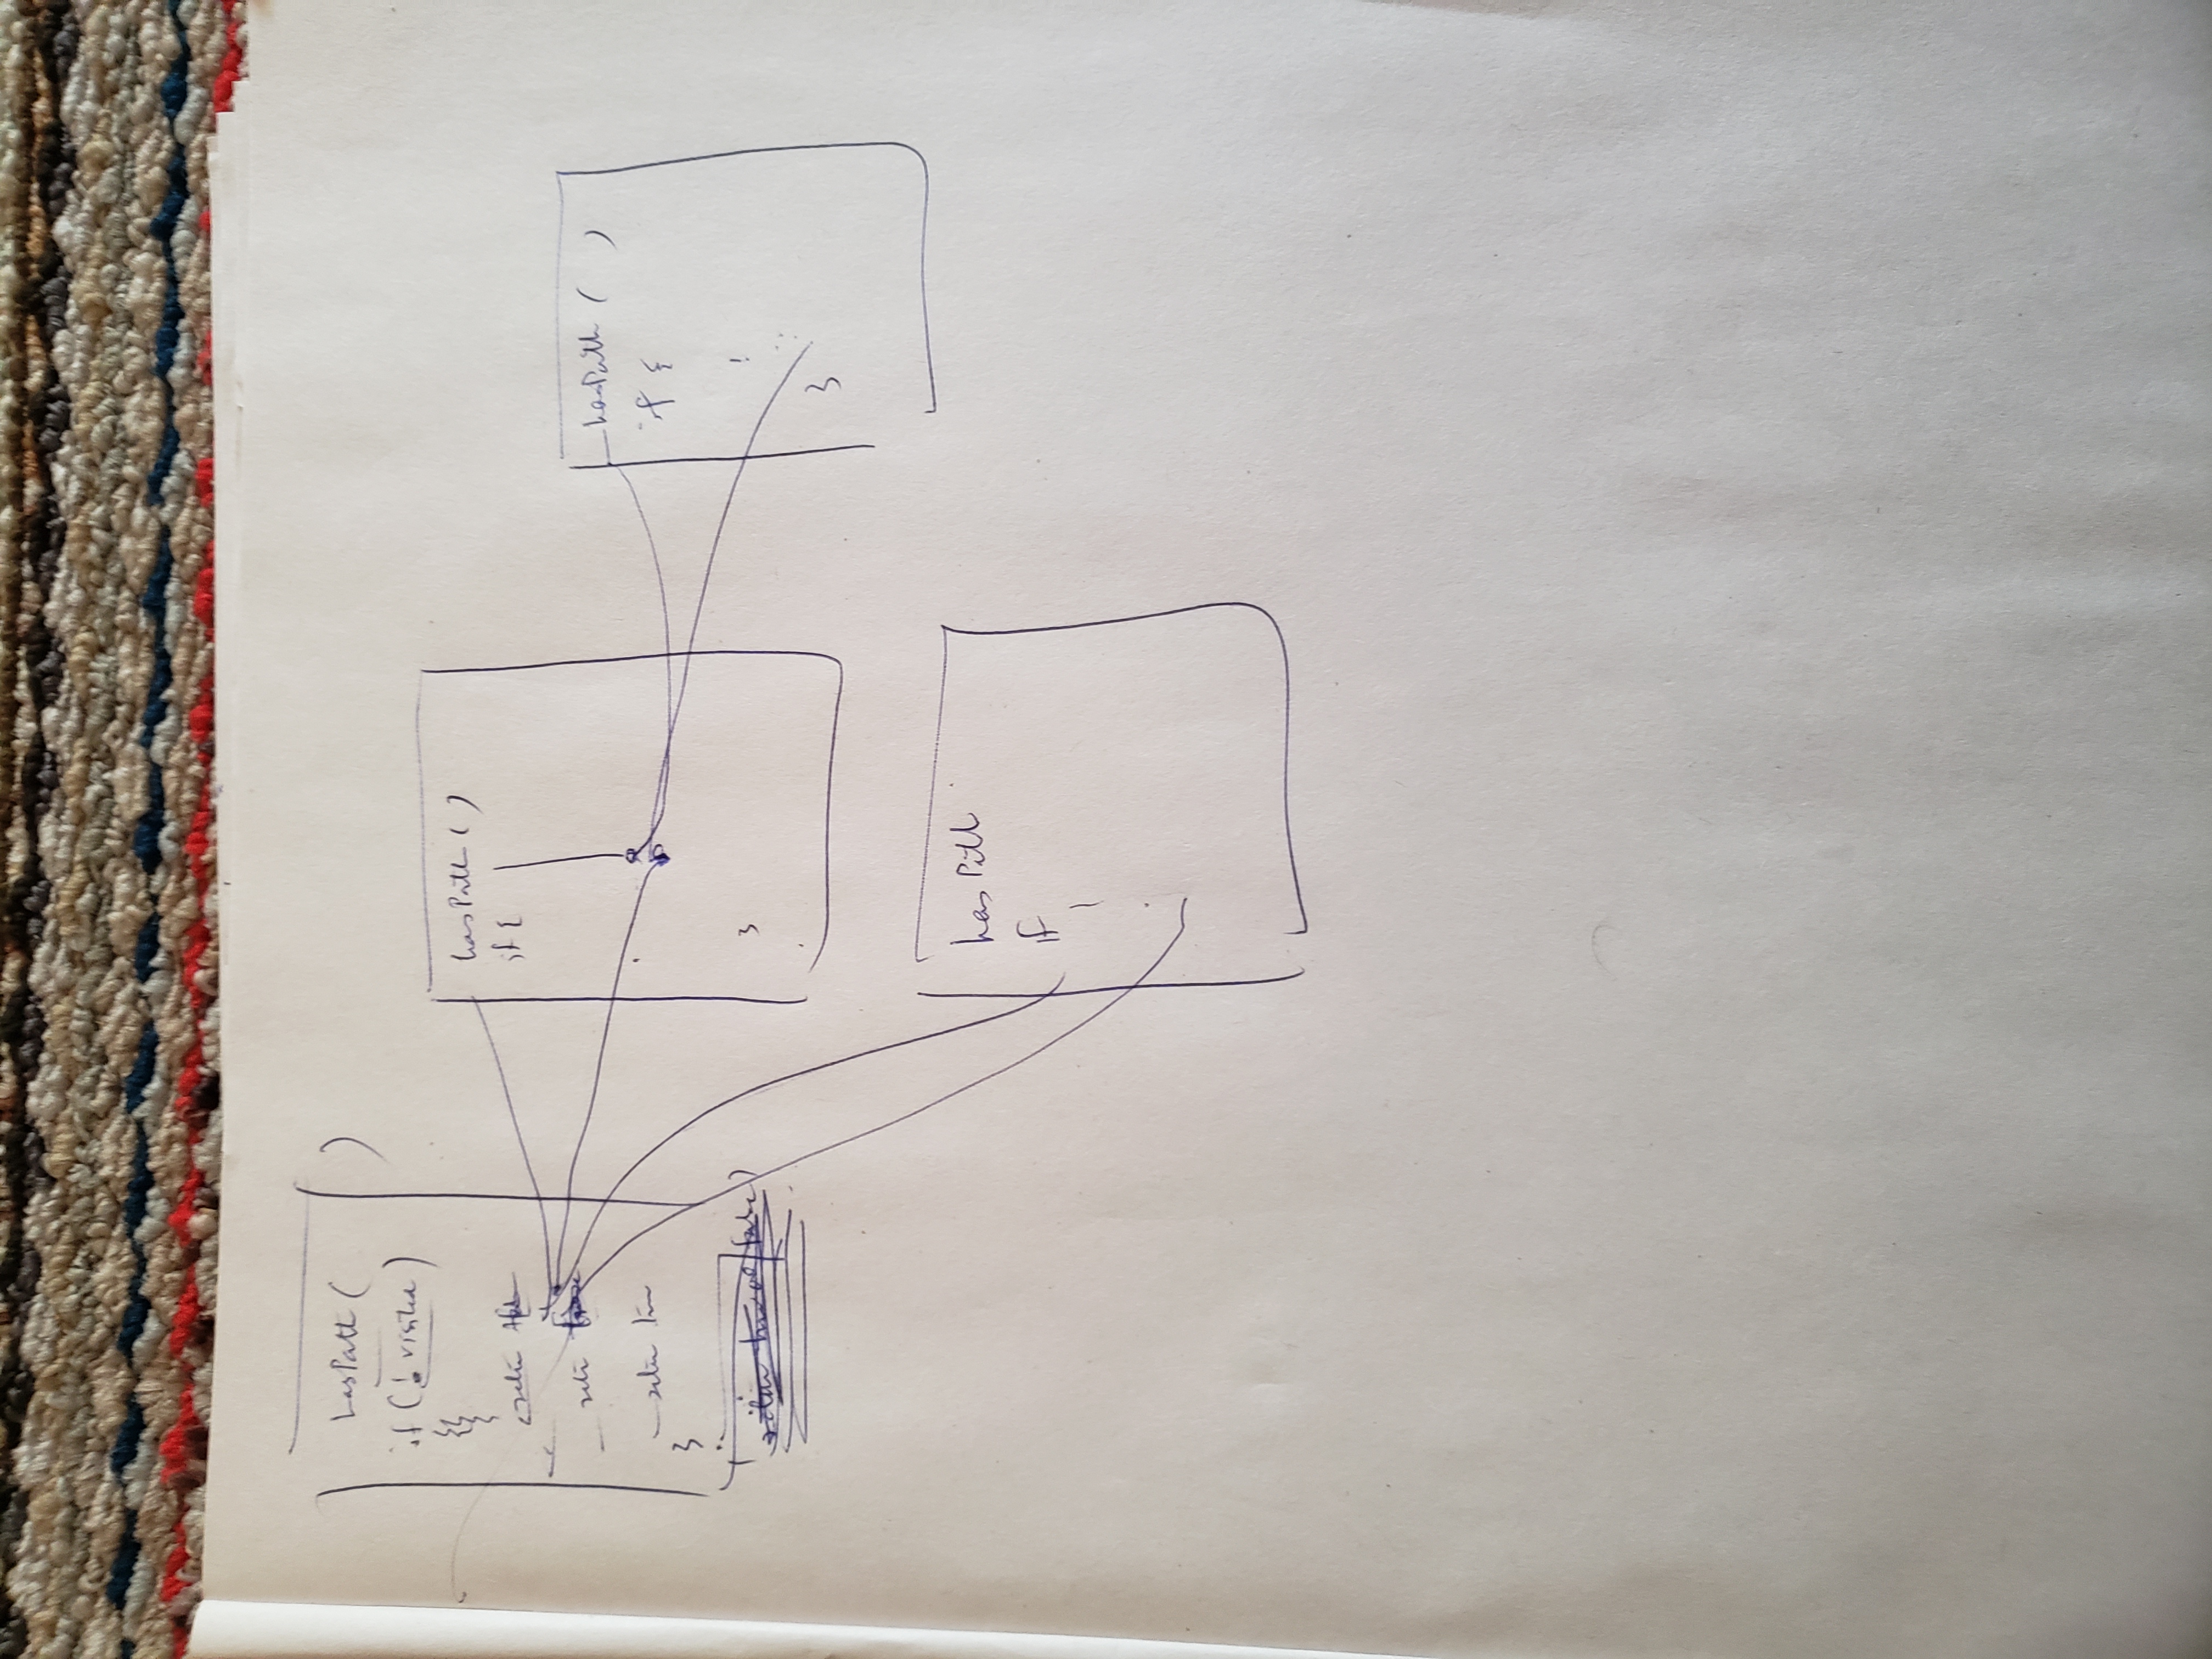 hasPath (          )
if (! visited)
{{
}
return
return
return true
}
hasPath ( )
if {
}
hasPath (   )
if {
!
}
hasPath
if